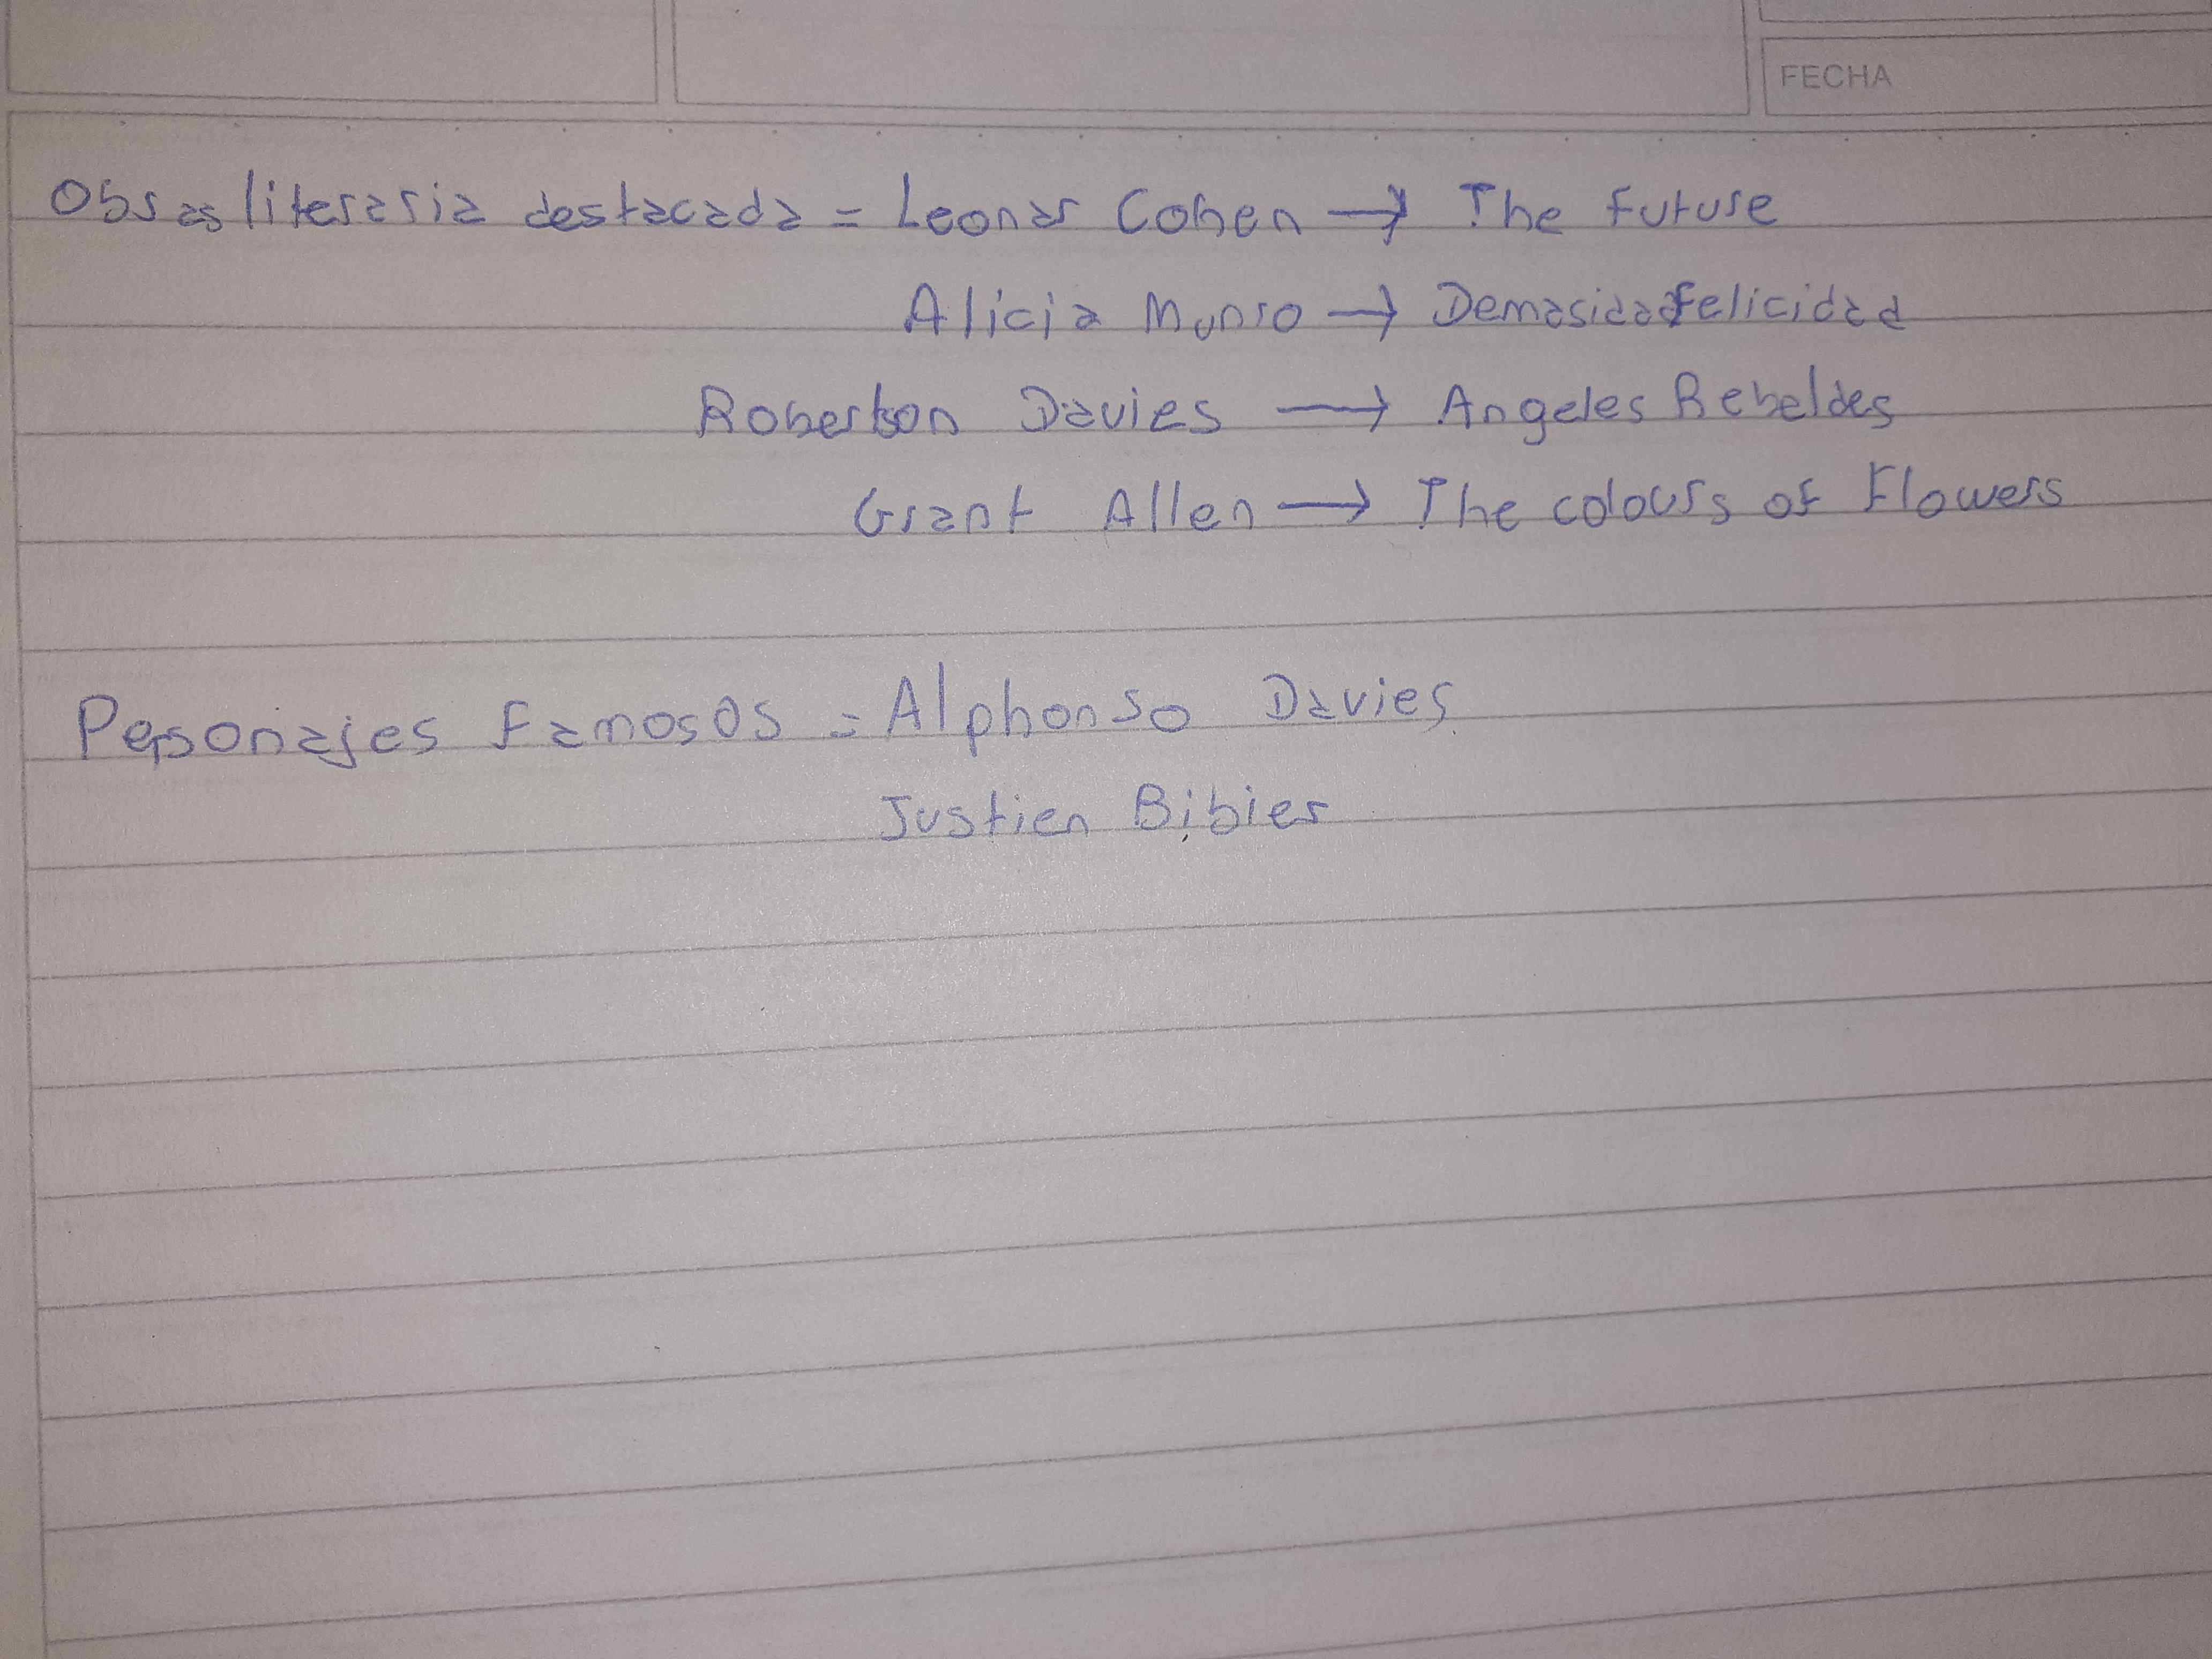 FECHA
Obras literaria destacada = Leonar Cohen → The future
Alicia Munro → Demasiada felicidad
Roberton Davies → Angeles Rebeldes
Grant Allen → The colours of Flowers
Personajes Famosos = Alphonso Davies
Justien Bibier